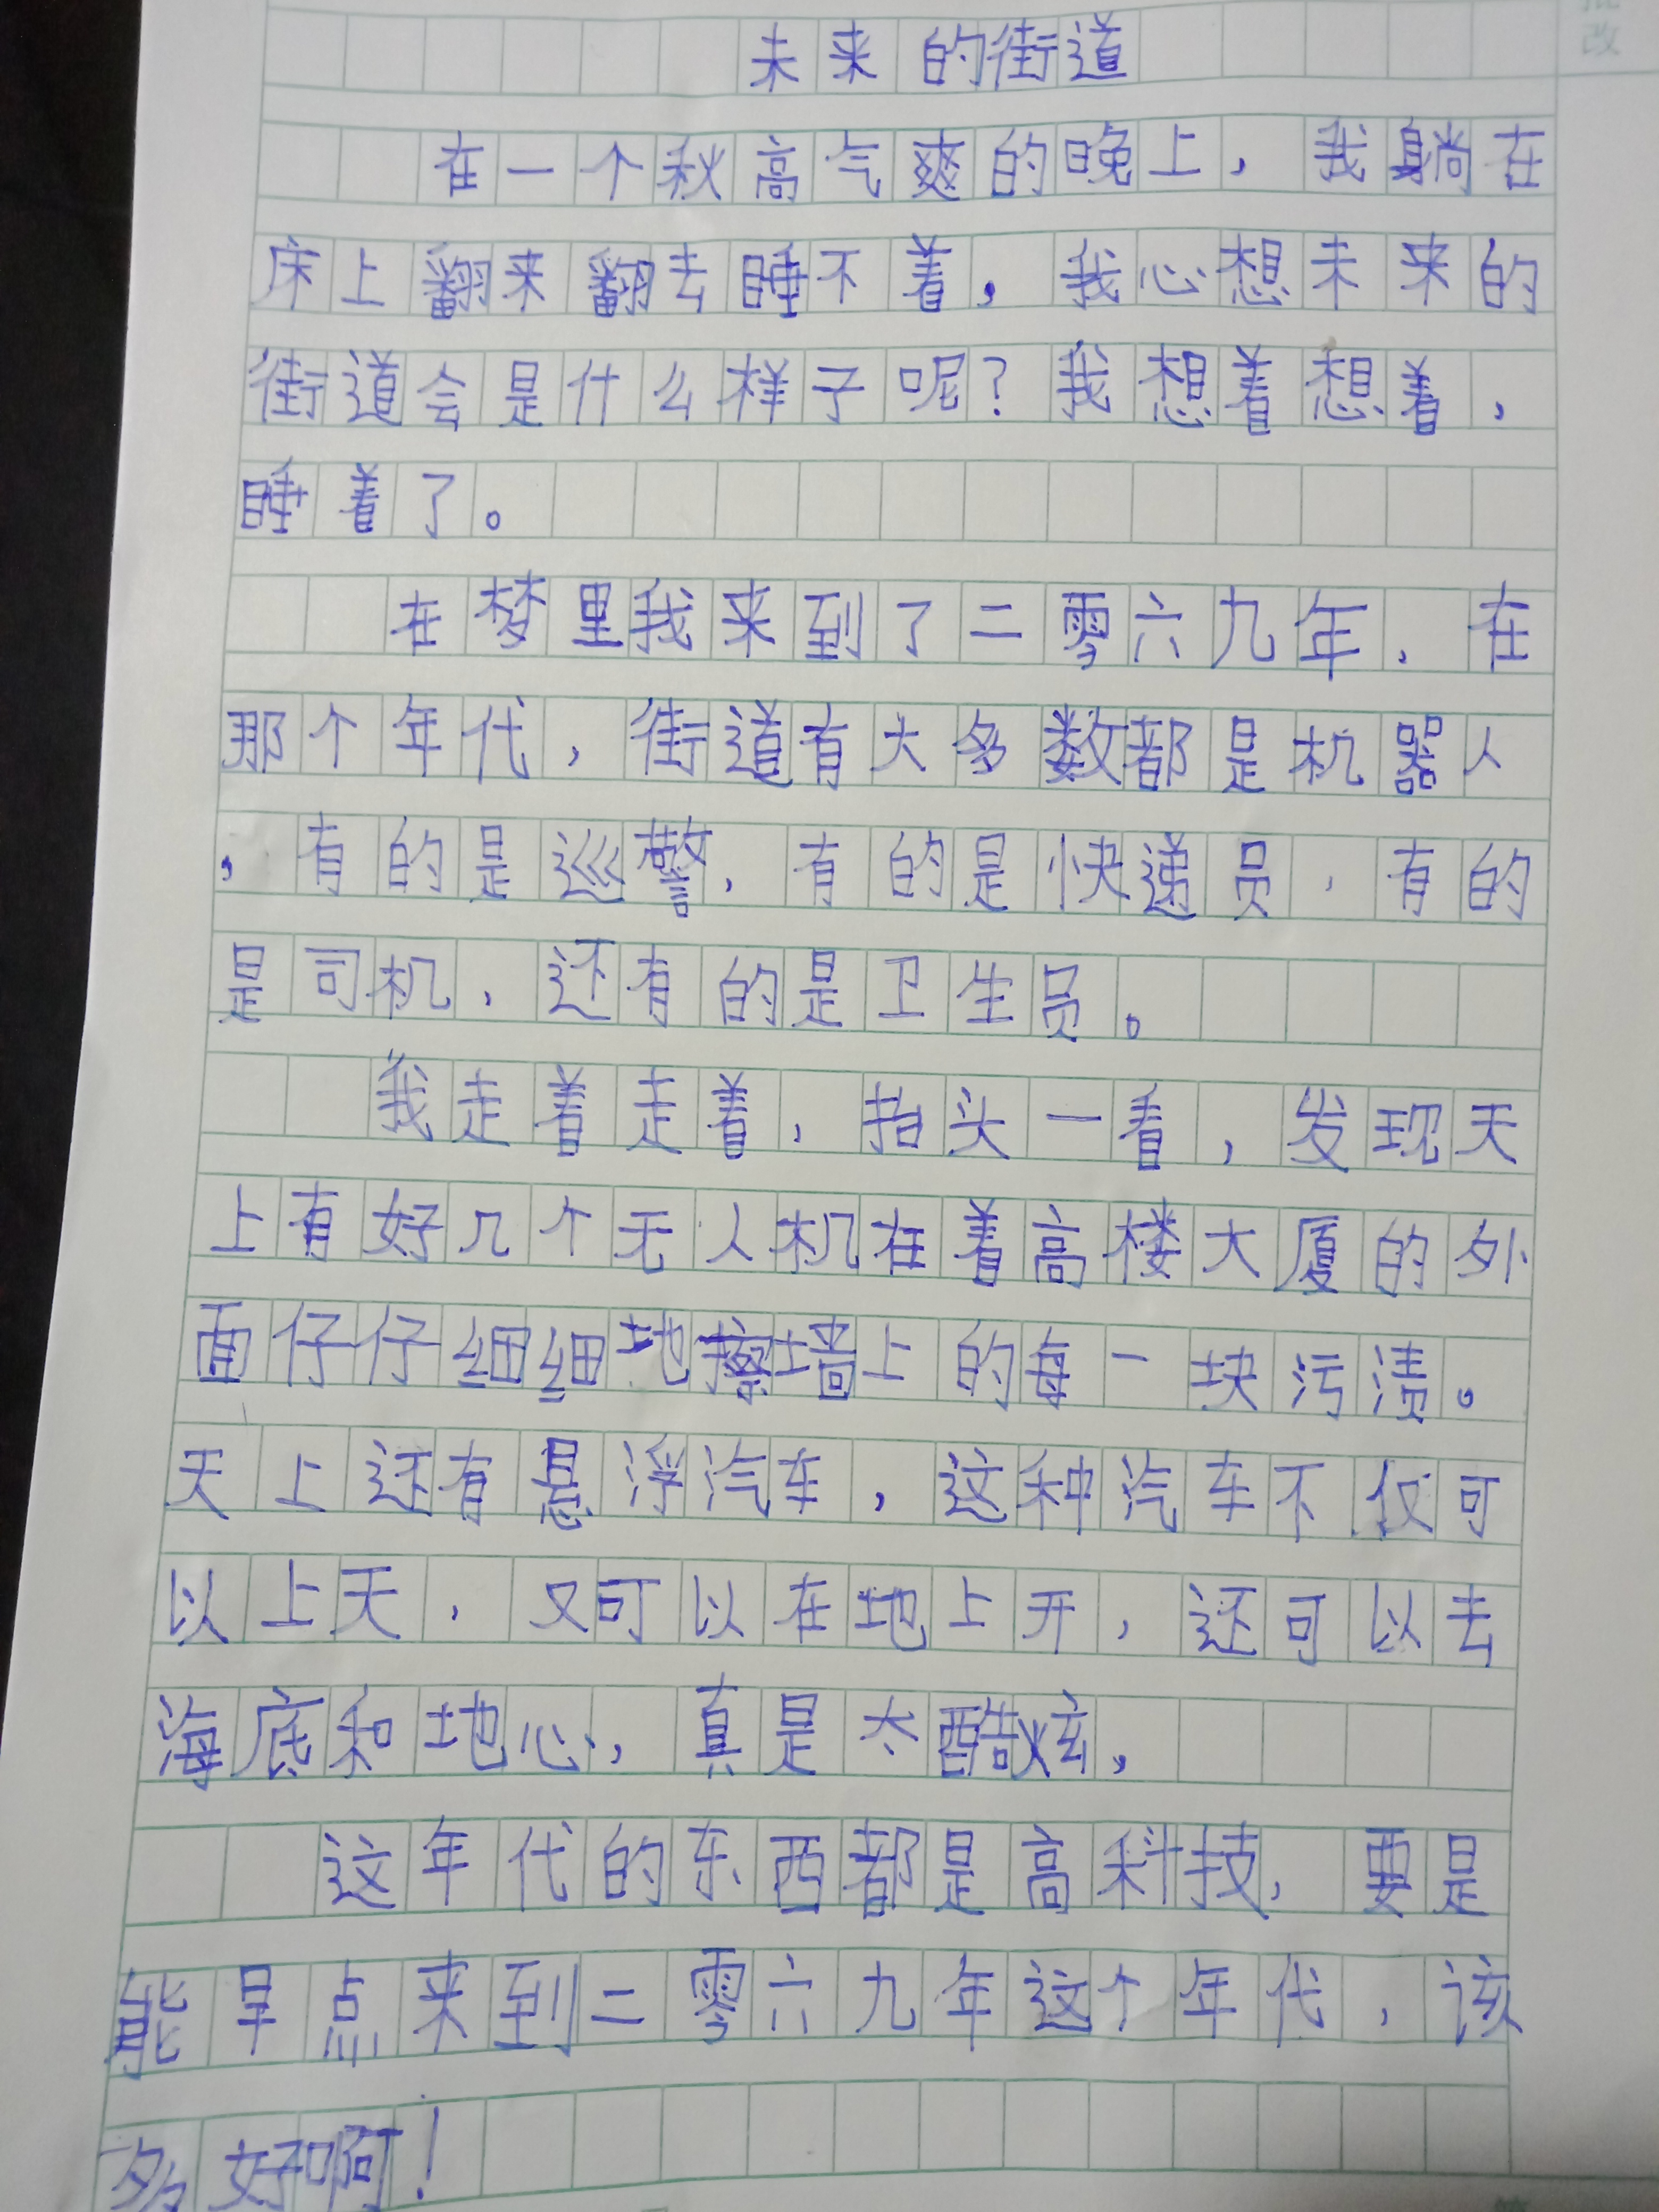 批改
未来的街道
在一个秋高气爽的晚上，我躺在
床上翻来翻去睡不着，我心想未来的
街道会是什么样子呢？我想着想着，
睡着了。
在梦里我来到了二零六九年，在
那个年代，街道有大多数都是机器人
，有的是巡警，有的是快递员，有的
是司机，还有的是卫生员。
我走着走着，抬头一看，发现天
上有好几个无人机在着高楼大厦的外
面仔仔细细地擦墙上的每一块污渍。
天上还有悬浮汽车，这种汽车不仅可
以上天，又可以在地上开，还可以去
海底和地心，真是太酷炫，
这年代的东西都是高科技，要是
能早点来到二零六九年这个年代，该
多好啊！